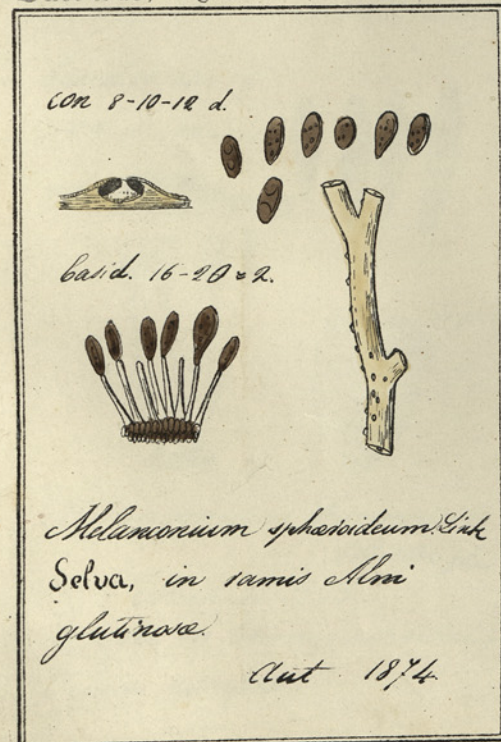 con 8-10-12 d.
basid. 16-20 = 2.
Melanconium sphæroideum Link
Selva, in ramis Alni
glutinosæ.
Aut 1874